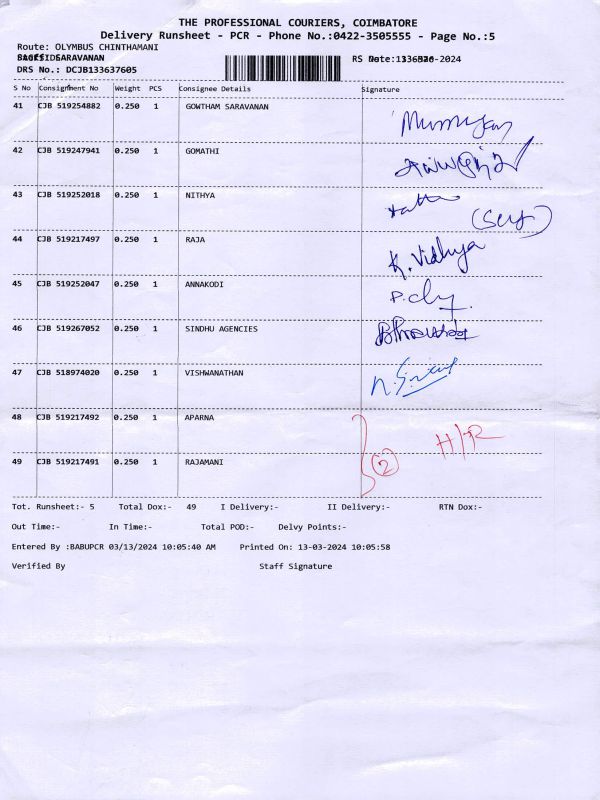 THE PROFESSIONAL COURIERS, COIMBATORE
Delivery Runsheet - PCR - Phone No.:0422-3505555 - Page No.:5
Route: OLYMBUS CHINTHAMANI
SARAVANAN
DRS No.: DCJB133637605
S No Consignment No Weight PCS Consignee Details Signature
41 CJB 519254882 0.250 1 GOWTHAM SARAVANAN
42 CJB 519247941 0.250 1 GOMATHI
43 CJB 519252018 0.250 1 NITHYA
44 CJB 519217497 0.250 1 RAJA K. Vidhya
45 CJB 519252047 0.250 1 ANNAKODI
46 CJB 519267052 0.250 1 SINDHU AGENCIES
47 CJB 518974020 0.250 1 VISHWANATHAN
48 CJB 519217492 0.250 1 APARNA H/R
49 CJB 519217491 0.250 1 RAJAMANI 2
Tot. Runsheet:- 5 Total Dox:- 49 I Delivery:- II Delivery:- RTN Dox:-
Out Time:- In Time:- Total POD:- Delvy Points:-
Entered By :BABUPCR 03/13/2024 10:05:40 AM Printed On: 13-03-2024 10:05:58
Verified By Staff Signature